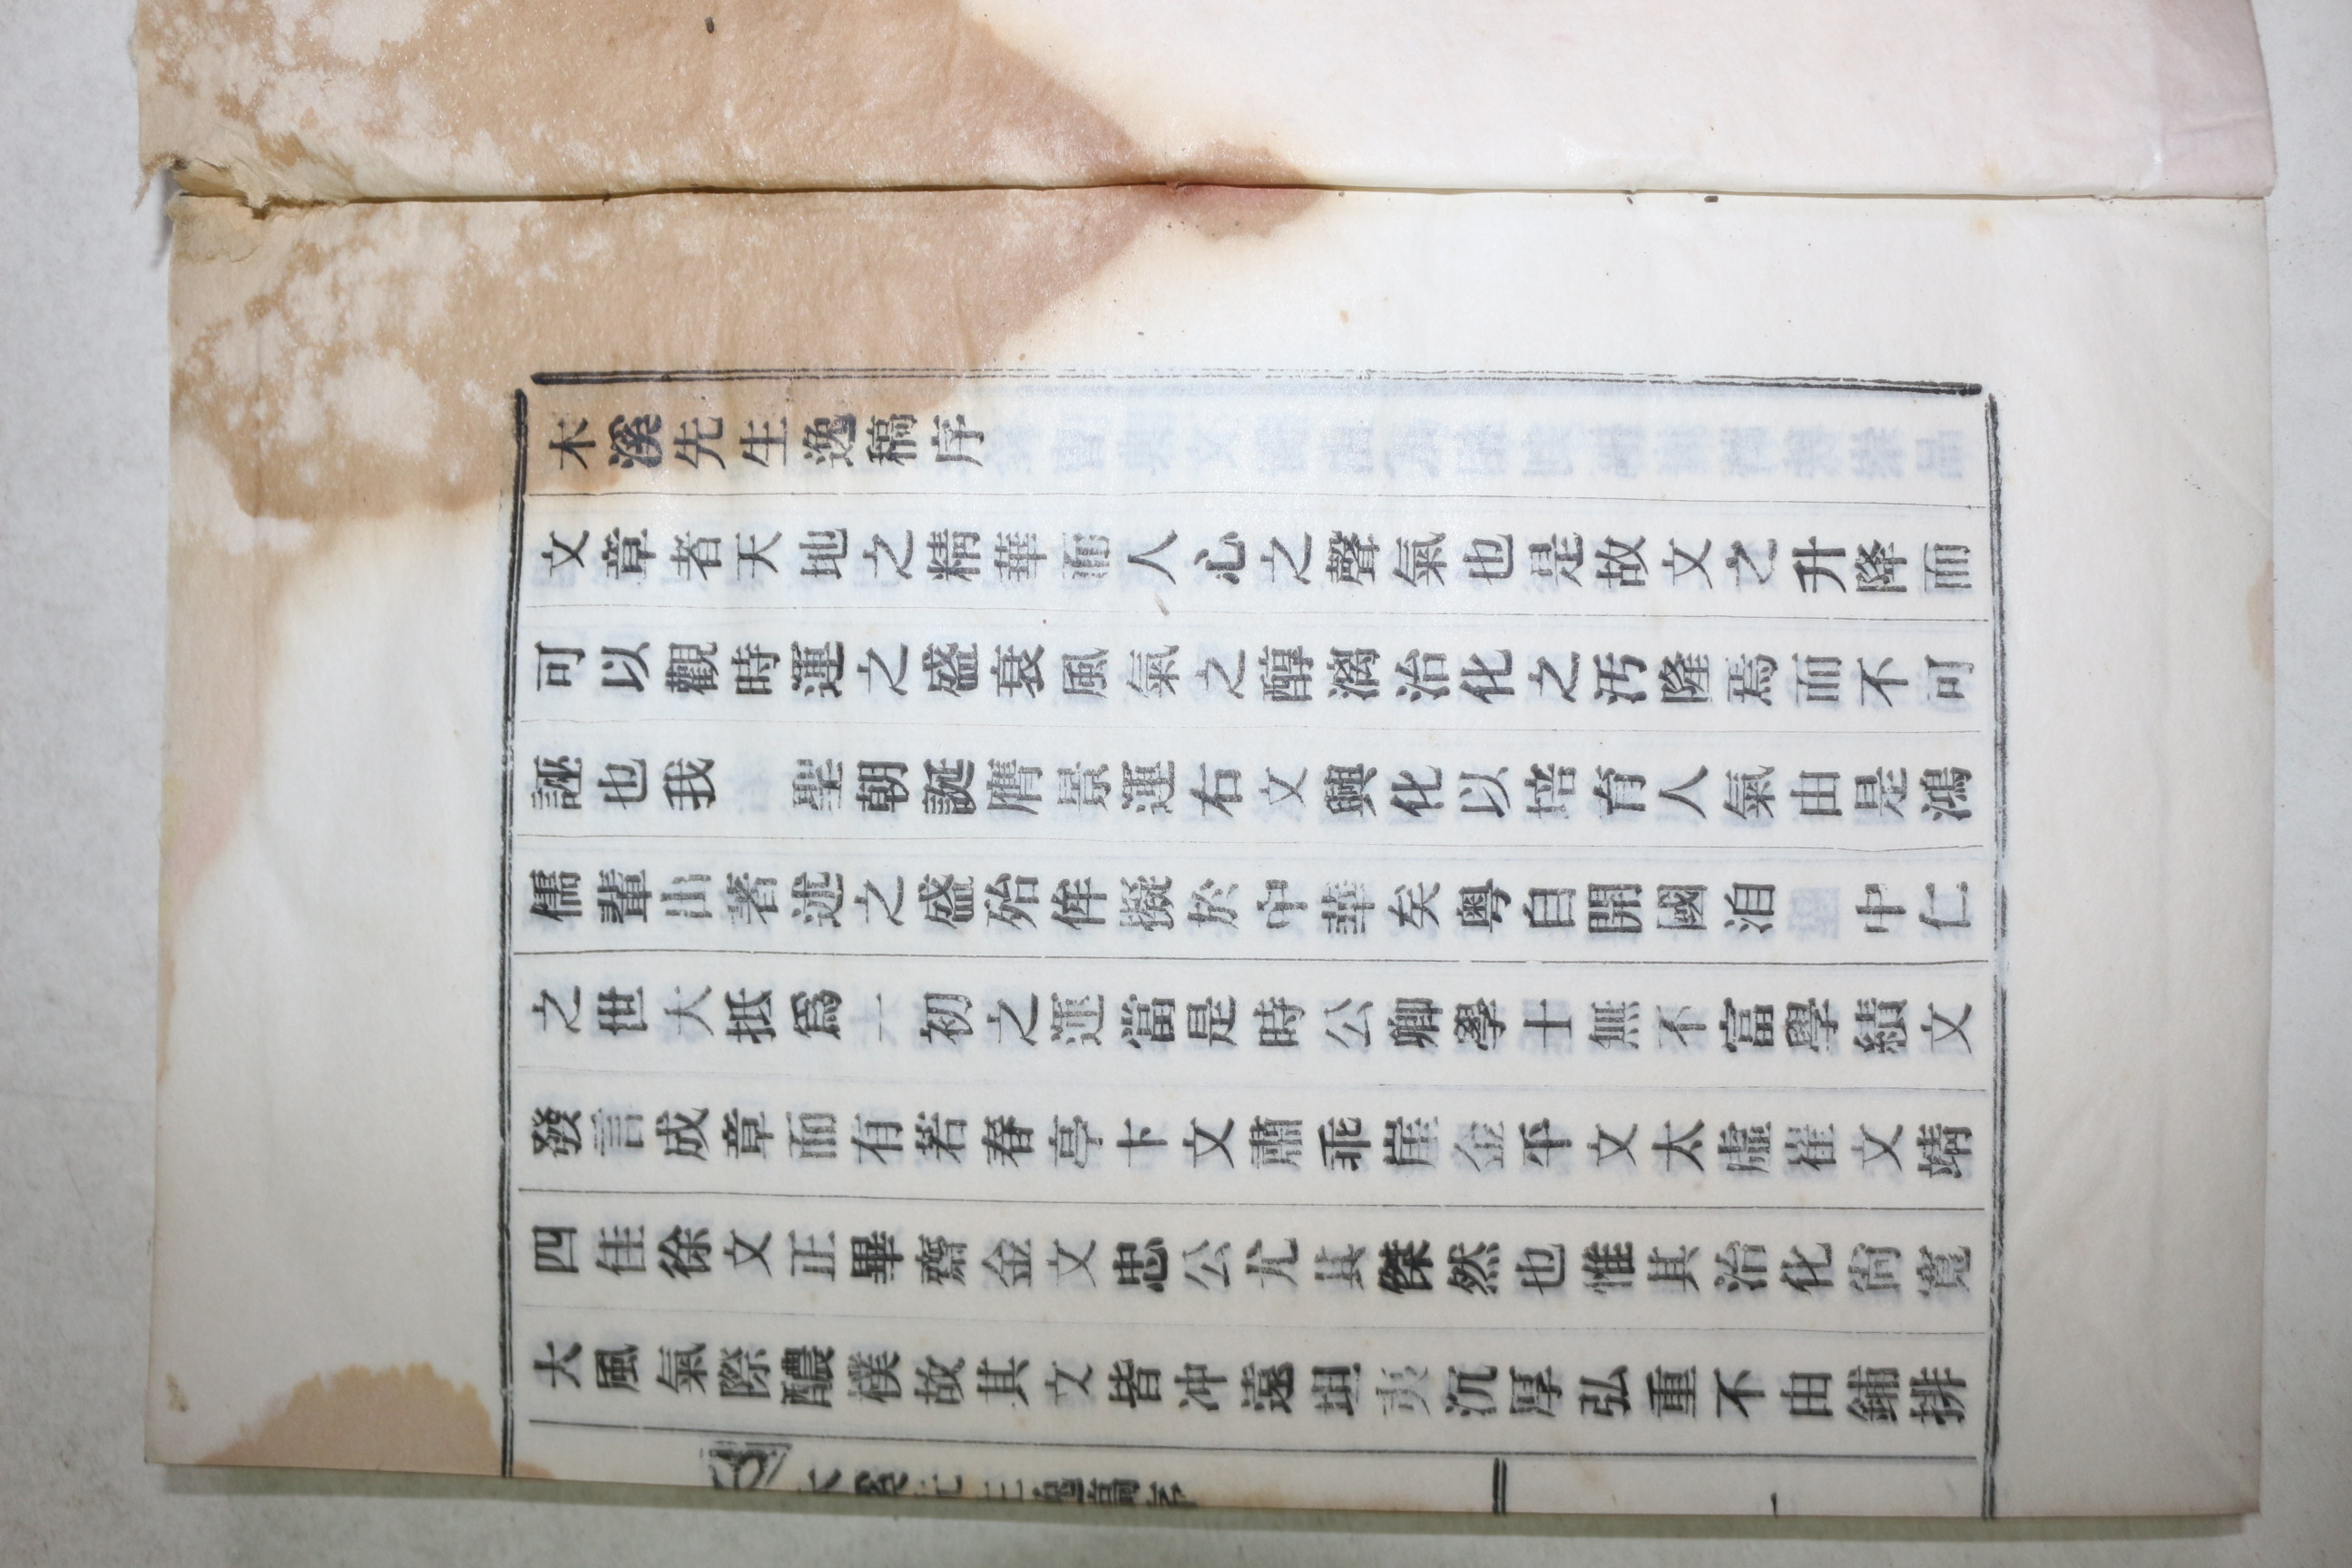 木溪先生逸稿序
文章者天地之精華而人心之聲氣也是故文之升降而
可以觀時運之盛衰風氣之醇漓治化之汚隆焉而不可
誣也我 聖朝誕膺景運右文興化以培育人氣由是鴻
儒輩出著述之盛殆侔擬於中華矣粤自開國洎 中仁
之世大抵爲 初之運當是時公卿學士無不富學績文
發言成章而有若春亭卞文肅乖崖金平文太虛崔文靖
四佳徐文正畢齋金文忠公尤其傑然也惟其治化尙寬
大風氣際醲樸故其文皆冲遠坦夷沉厚弘重不由鋪排
木溪先生逸稿序 一